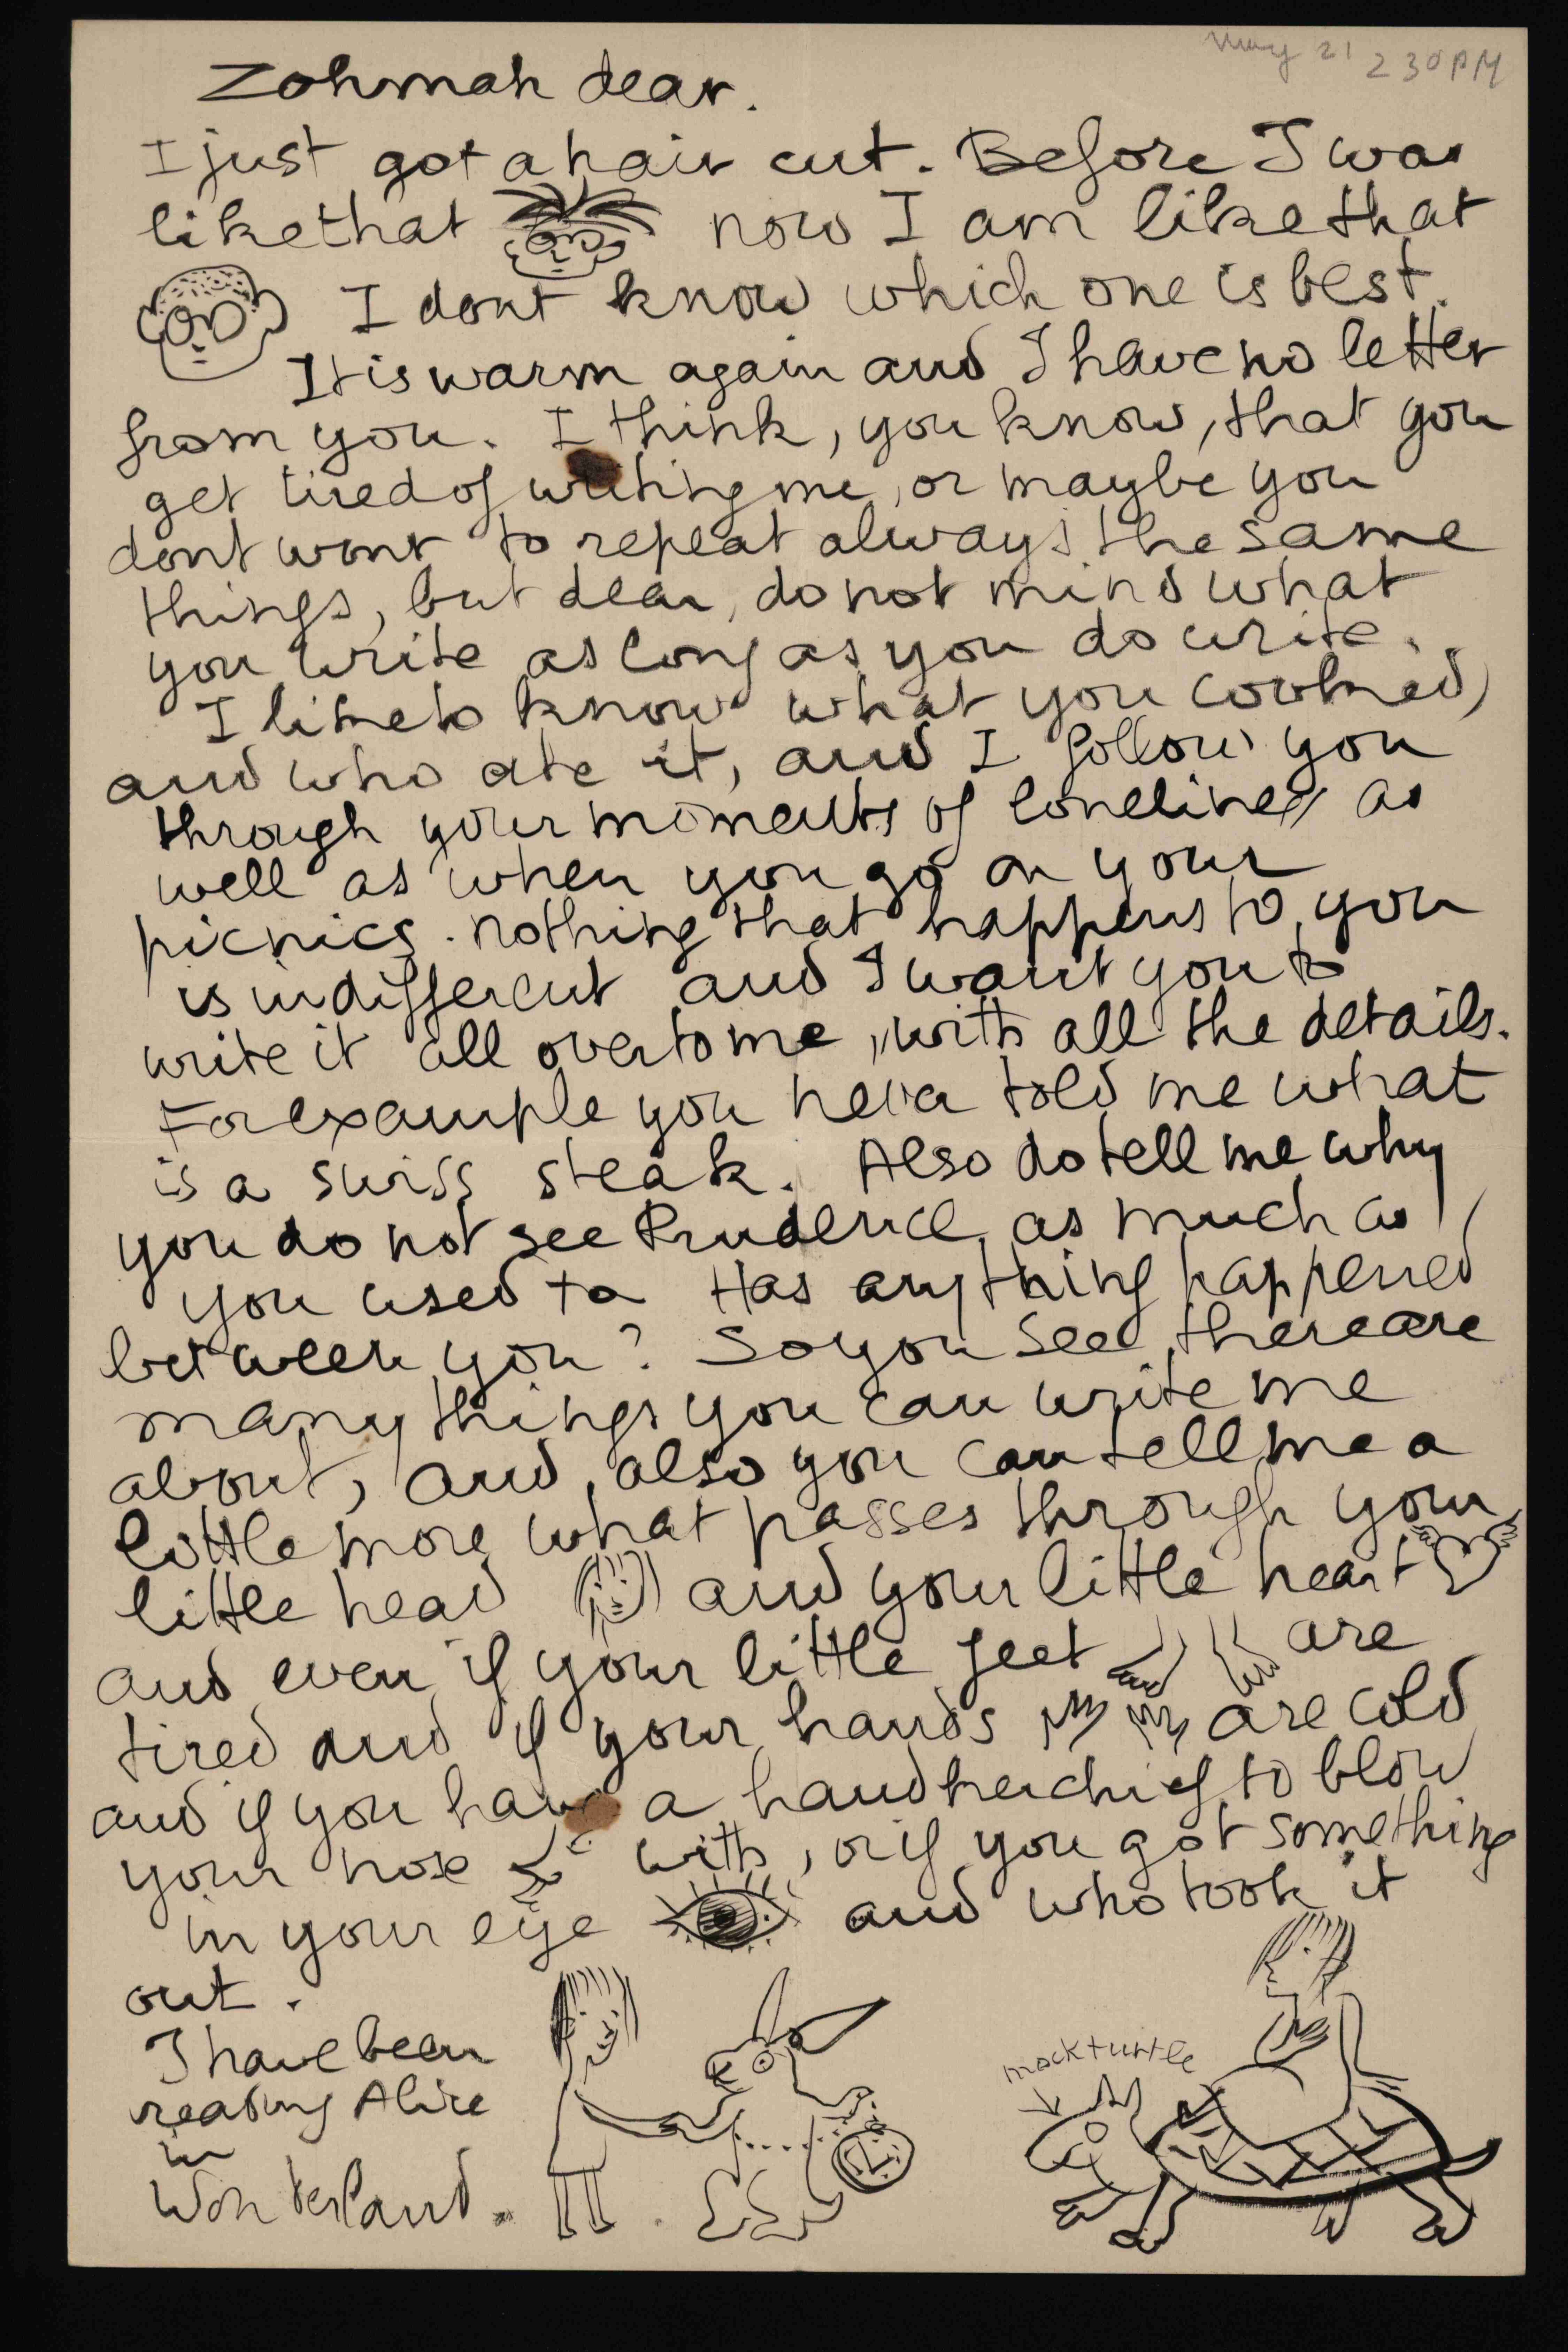 May 21 2 30 PM
Zohmah dear.
I just got a hair cut. Before I was
like that now I am like that
I dont know which one is best.
It is warm again and I have no letter
from you. I think, you know, that you
get tired of writing me, or maybe you
dont want to repeat always the same
things, but dear, do not mind what
you write as long as you do write.
I like to know what you cooked,
and who ate it, and I follow you
through your moments of loneliness as
well as when you go on your
picnics. nothing that happens to you
is indifferent and I want you to
write it all over to me, with all the details.
For example you never told me what
is a swiss steak. Also do tell me why
you do not see Prudence as much as
you used to Has anything happened
between you? So you see, there are
many things you can write me
about, and also you can tell me a
little more what passes through your
little head and your little heart
and even if your little feet are
tired and if your hands are cold
and if you have a handkerchief to blow
your nose with, or if you got something
in your eye and who took it
out.
I have been
reading Alice
in
Wonderland.
mock turtle